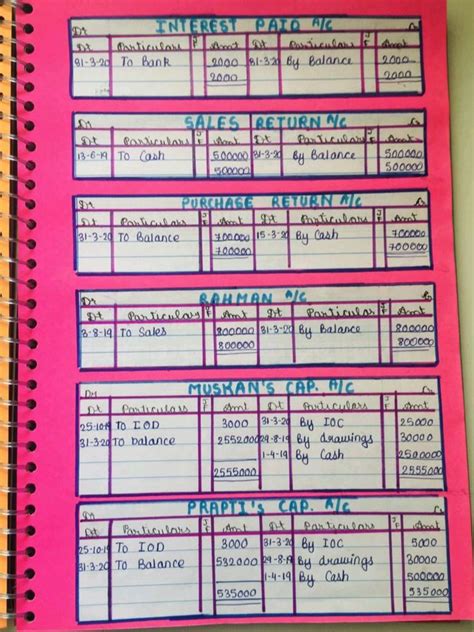 INTEREST PAID A/C
Dt Cr
Dt Particulars J F Amt Dt Particulars J F Amt
31-3-20 To Bank 2000 31-3-20 By Balance 2000
2000 2000
SALES RETURN A/C
Dt Particulars J F Amt Dt Particulars J F Amt
13-6-19 To Cash 500000 31-3-20 By Balance 500000
500000 500000
PURCHASE RETURN A/C
Dt Particulars J F Amt Dt Particulars J F Amt
31-3-20 To Balance 700000 15-3-20 By Cash 700000
700000 700000
RAHMAN A/C
Dt Cr
Dt Particulars J F Amt Dt Particulars J F Amt
3-8-19 To Sales 800000 31-3-20 By Balance 800000
800000 800000
MUSKAN'S CAP. A/C
Dt Cr
Dt Particulars J F Amt Dt Particulars J F Amt
25-10-19 To IOD 3000 31-3-20 By IOC 25000
31-3-20 To balance 2552000 29-8-19 By drawings 30000
1-4-19 By Cash 2500000
2555000 2555000
PRAPTI'S CAP. A/C
Dt Cr
Dt Particulars J F Amt Dt Particulars J F Amt
25-10-19 To IOD 3000 31-3-20 By IOC 5000
31-3-20 To Balance 532000 29-8-19 By drawings 30000
1-4-19 By Cash 500000
535000 535000